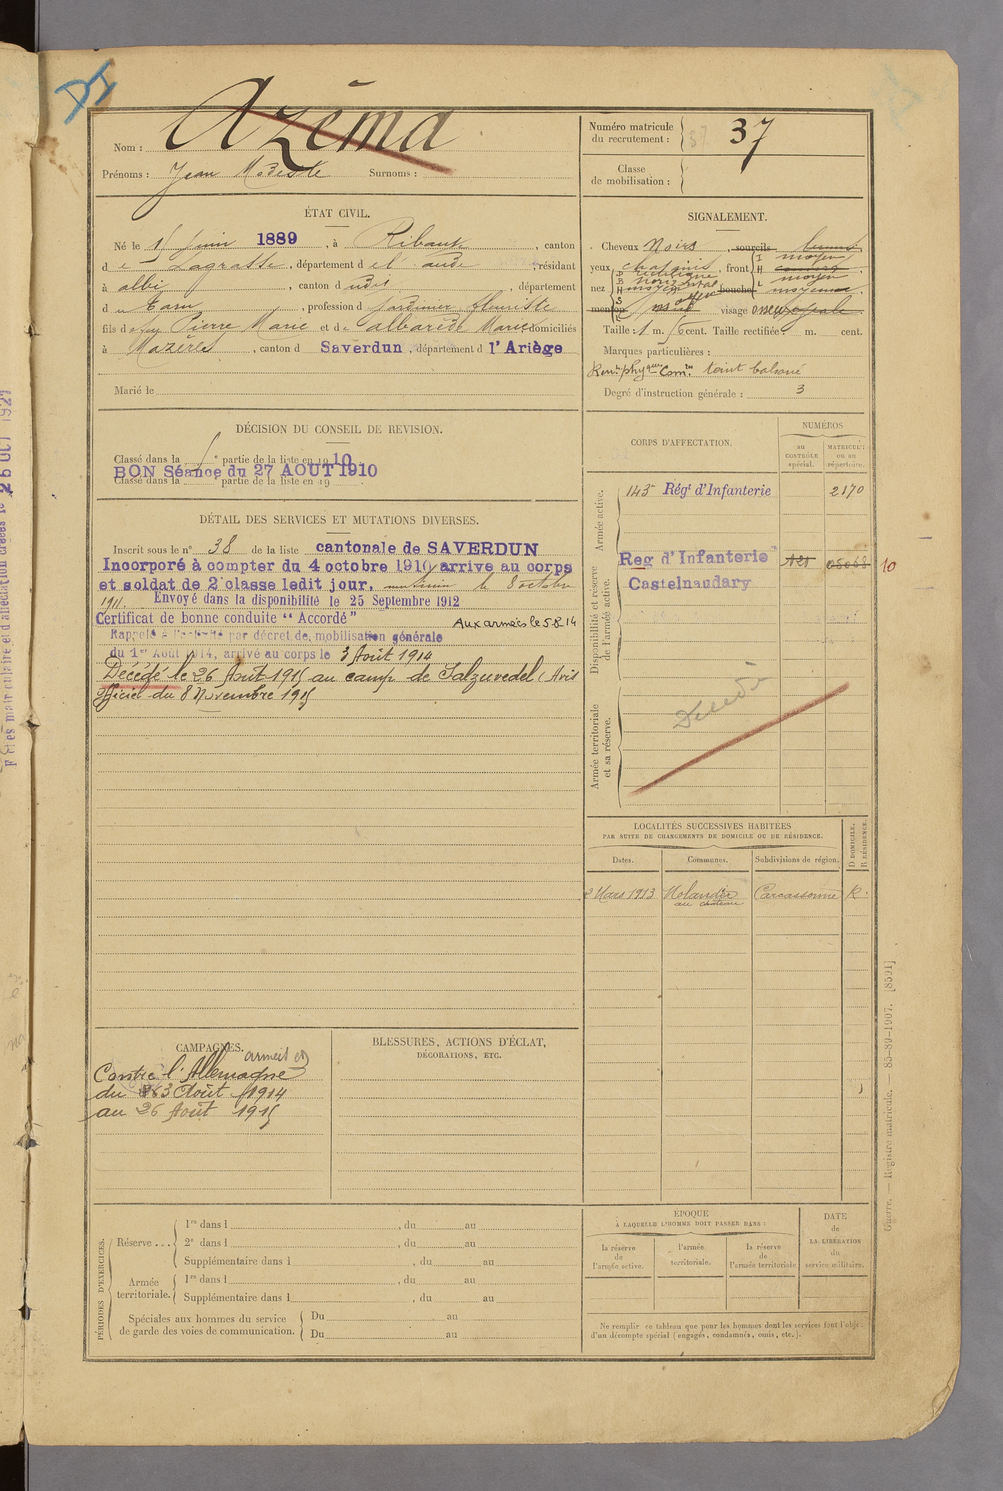 DI
Nom : Azéma
Prénoms : Jean Modeste Surnoms :
Numéro matricule
du recrutement : 37
Classe
de mobilisation :
ÉTAT CIVIL.
Né le 15 juin 1889, à Ribaute, canton
de Lagrasse, département de l'aude, résidant
à albi, canton d udit, département
du Tarn, profession d jardinier fleuriste
fils de feu Pierre Marie et de albarède Marie domiciliés
à Mazères, canton d Saverdun, département d l'Ariège
Marié le
SIGNALEMENT.
Cheveux Noirs, sourcils
yeux chatains, front
moyen
nez
bouche
menton visage
Taille : 1 m. cent. Taille rectifiée : m. cent.
Marques particulières :
teint basané
Degré d'instruction générale : 3
DÉCISION DU CONSEIL DE REVISION.
Classé dans la 1e partie de la liste en 1910
BON Séance du 27 AOUT 1910
Classé dans la partie de la liste en 19
DÉTAIL DES SERVICES ET MUTATIONS DIVERSES.
Inscrit sous le n° 38 de la liste cantonale de SAVERDUN
Incorporé à compter du 4 octobre 1910 arrive au corps
et soldat de 2e classe ledit jour, le 8 octobre
1911. Envoyé dans la disponibilité le 25 Septembre 1912
Certificat de bonne conduite "Accordé" Aux armées le 5.8.14
Rappelé à l'activité par décret de mobilisation générale
du 1er Août 1914, arrivé au corps le 3 Août 1914
Décédé le 26 Août 1915 au camp de Salzuvedel (Avis
officiel du 8 Novembre 1915
CORPS D'AFFECTATION.
NUMÉROS
au
CONTRÔLE
spécial.
MATRICULE
ou au
répertoire.
Armée active.
145 Régt d'Infanterie 2170
Disponibilité et réserve
de l'armée active.
Reg d'Infanterie
Castelnaudary
10
Armée territoriale
et sa réserve.
Décédé
LOCALITÉS SUCCESSIVES HABITÉES
PAR SUITE DE CHANGEMENTS DE DOMICILE OU DE RÉSIDENCE.
Dates. Communes. Subdivisions de région. D DOMICILE. R RÉSIDENCE.
2 Mars 1913 Molandier Carcassonne R.
au château
CAMPAGNES.
Contre l'Allemagne
du 3 Août 1914
au 26 Août 1915
BLESSURES, ACTIONS D'ÉCLAT,
DÉCORATIONS, ETC.
PÉRIODES D'EXERCICES.
Réserve . . .
1re dans l , du au
2e dans l , du au
Supplémentaire dans l , du au
Armée
territoriale.
1re dans l , du au
Supplémentaire dans l , du au
Spéciales aux hommes du service
de garde des voies de communication.
Du au
Du au
ÉPOQUE
À LAQUELLE L'HOMME DOIT PASSER DANS :
la réserve
de
l'armée active.
l'armée
territoriale.
la réserve
de
l'armée territoriale
DATE
de
LA LIBÉRATION
du
service militaire.
Ne remplir ce tableau que pour les hommes dont les services font l'objet
d'un décompte spécial (engagés, condamnés, omis, etc.).
Guerre. — Registre matricule. — 85-89-1907. [8591]